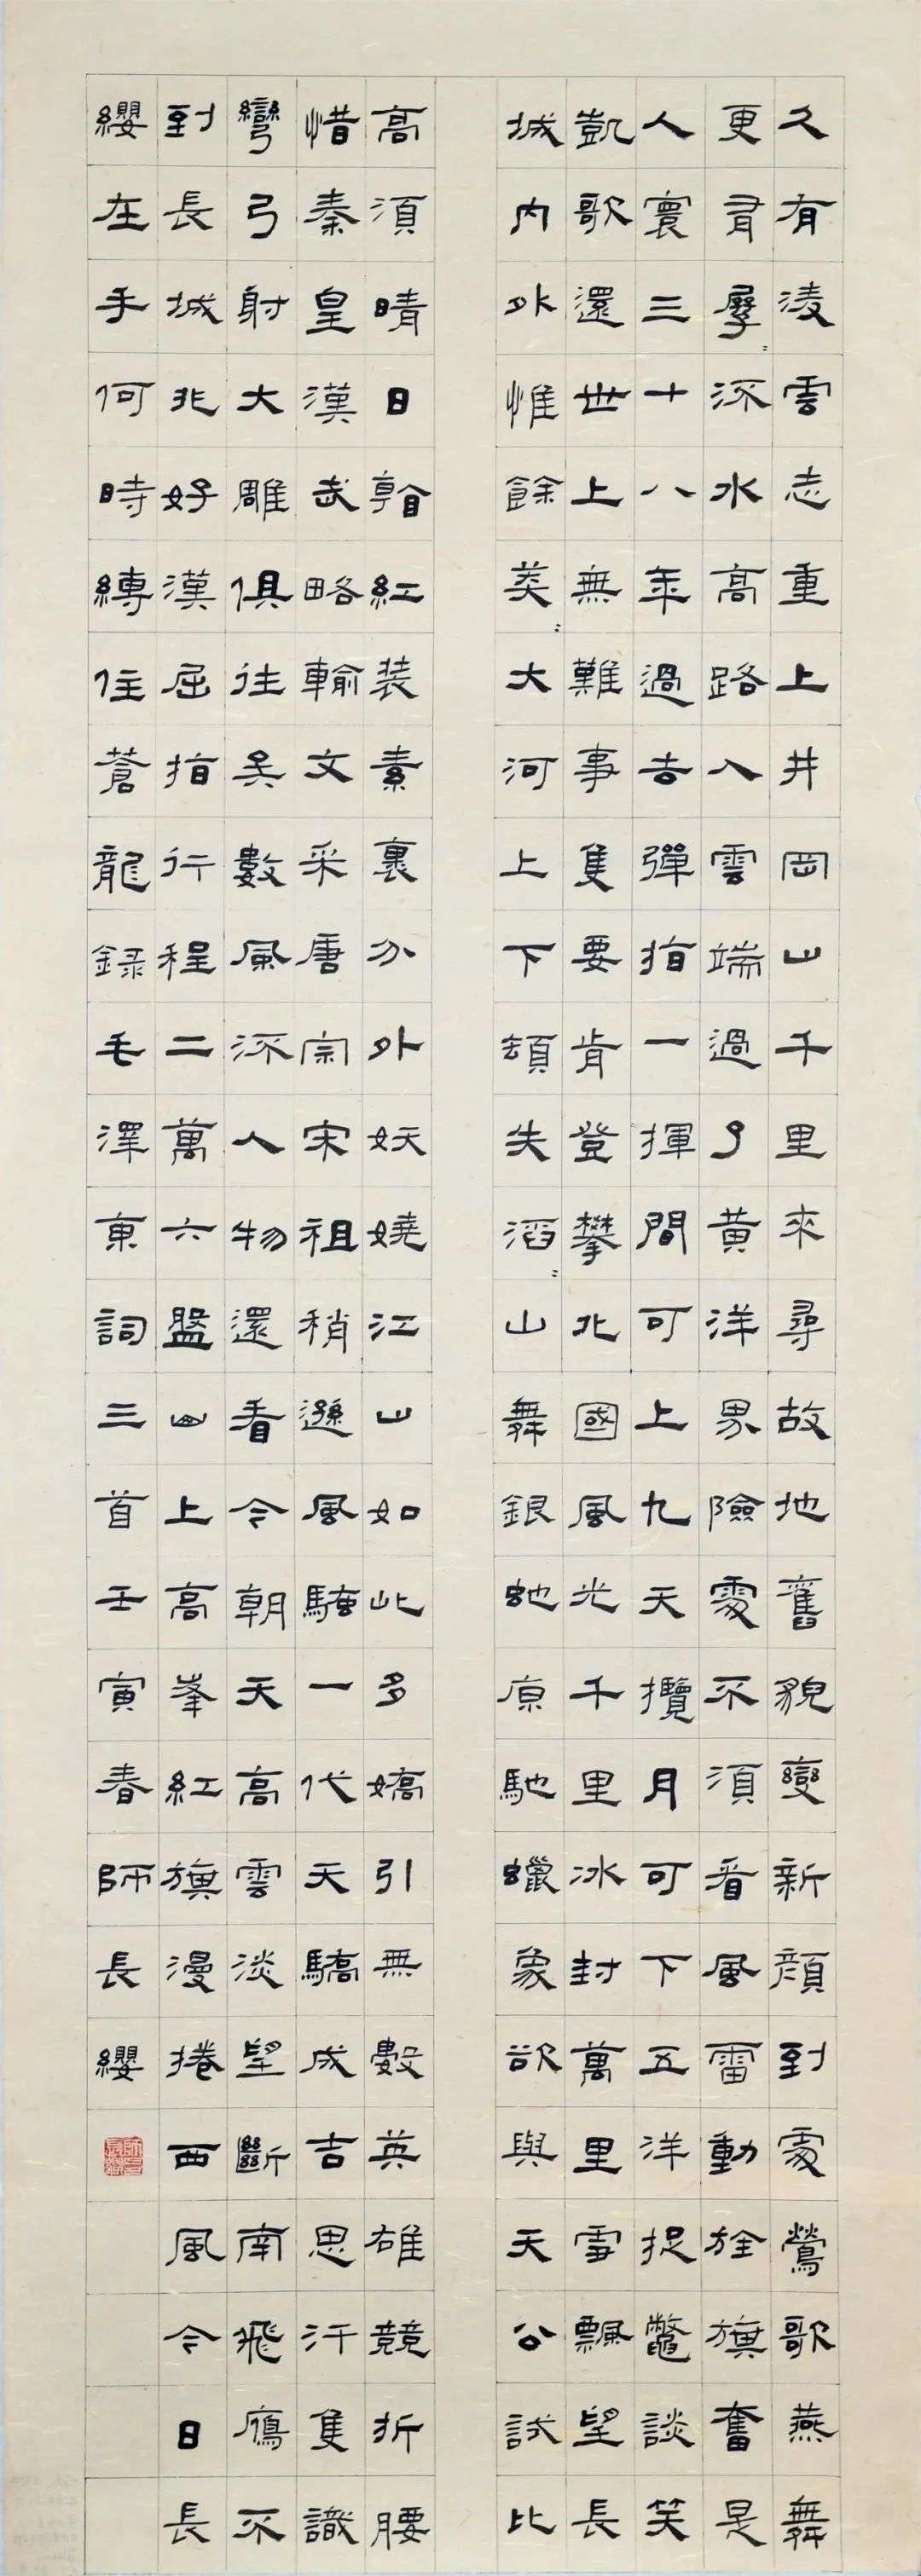 久有凌雲志重上井岡山千里來尋故地舊貌變新顏到處鶯歌燕舞
更有孱〻流水高路入雲端過了黄洋界險處不須看風雷動旌旗奮是
人寰三十八年過去彈指一揮間可上九天攬月可下五洋捉鱉談笑
凱歌還世上無難事隻要肯登攀北國風光千里冰封萬里雪飄望長
城内外惟餘莽〻大河上下頓失滔〻山舞銀蛇原馳蠟象欲與天公試比
高須晴日看紅装素裹分外妖嬈江山如此多嬌引無數英雄競折腰
惜秦皇漢武略輸文采唐宗宋祖稍遜風騷一代天驕成吉思汗隻識
彎弓射大雕俱往矣數風流人物還看今朝天高雲淡望斷南飛雁不
到長城非好漢屈指行程二萬六盤山上高峯紅旗漫捲西風今日長
纓在手何時縛住蒼龍録毛澤東詞三首壬寅春師長纓